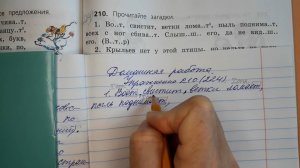 предложения.
210. Прочитайте загадки.
1. Во..т, свистит, ветки лома..т³, пыль поднима..т,
всех с ног сбива..т². Слыш..ш.. его, да не вид..ш..
его. (В..т..р)
2. Крыльев нет у этой птицы,
Домашняя работа.
Упражнение 210 (224)
1. Воет, свистит, ветки ломает,
пыль поднима